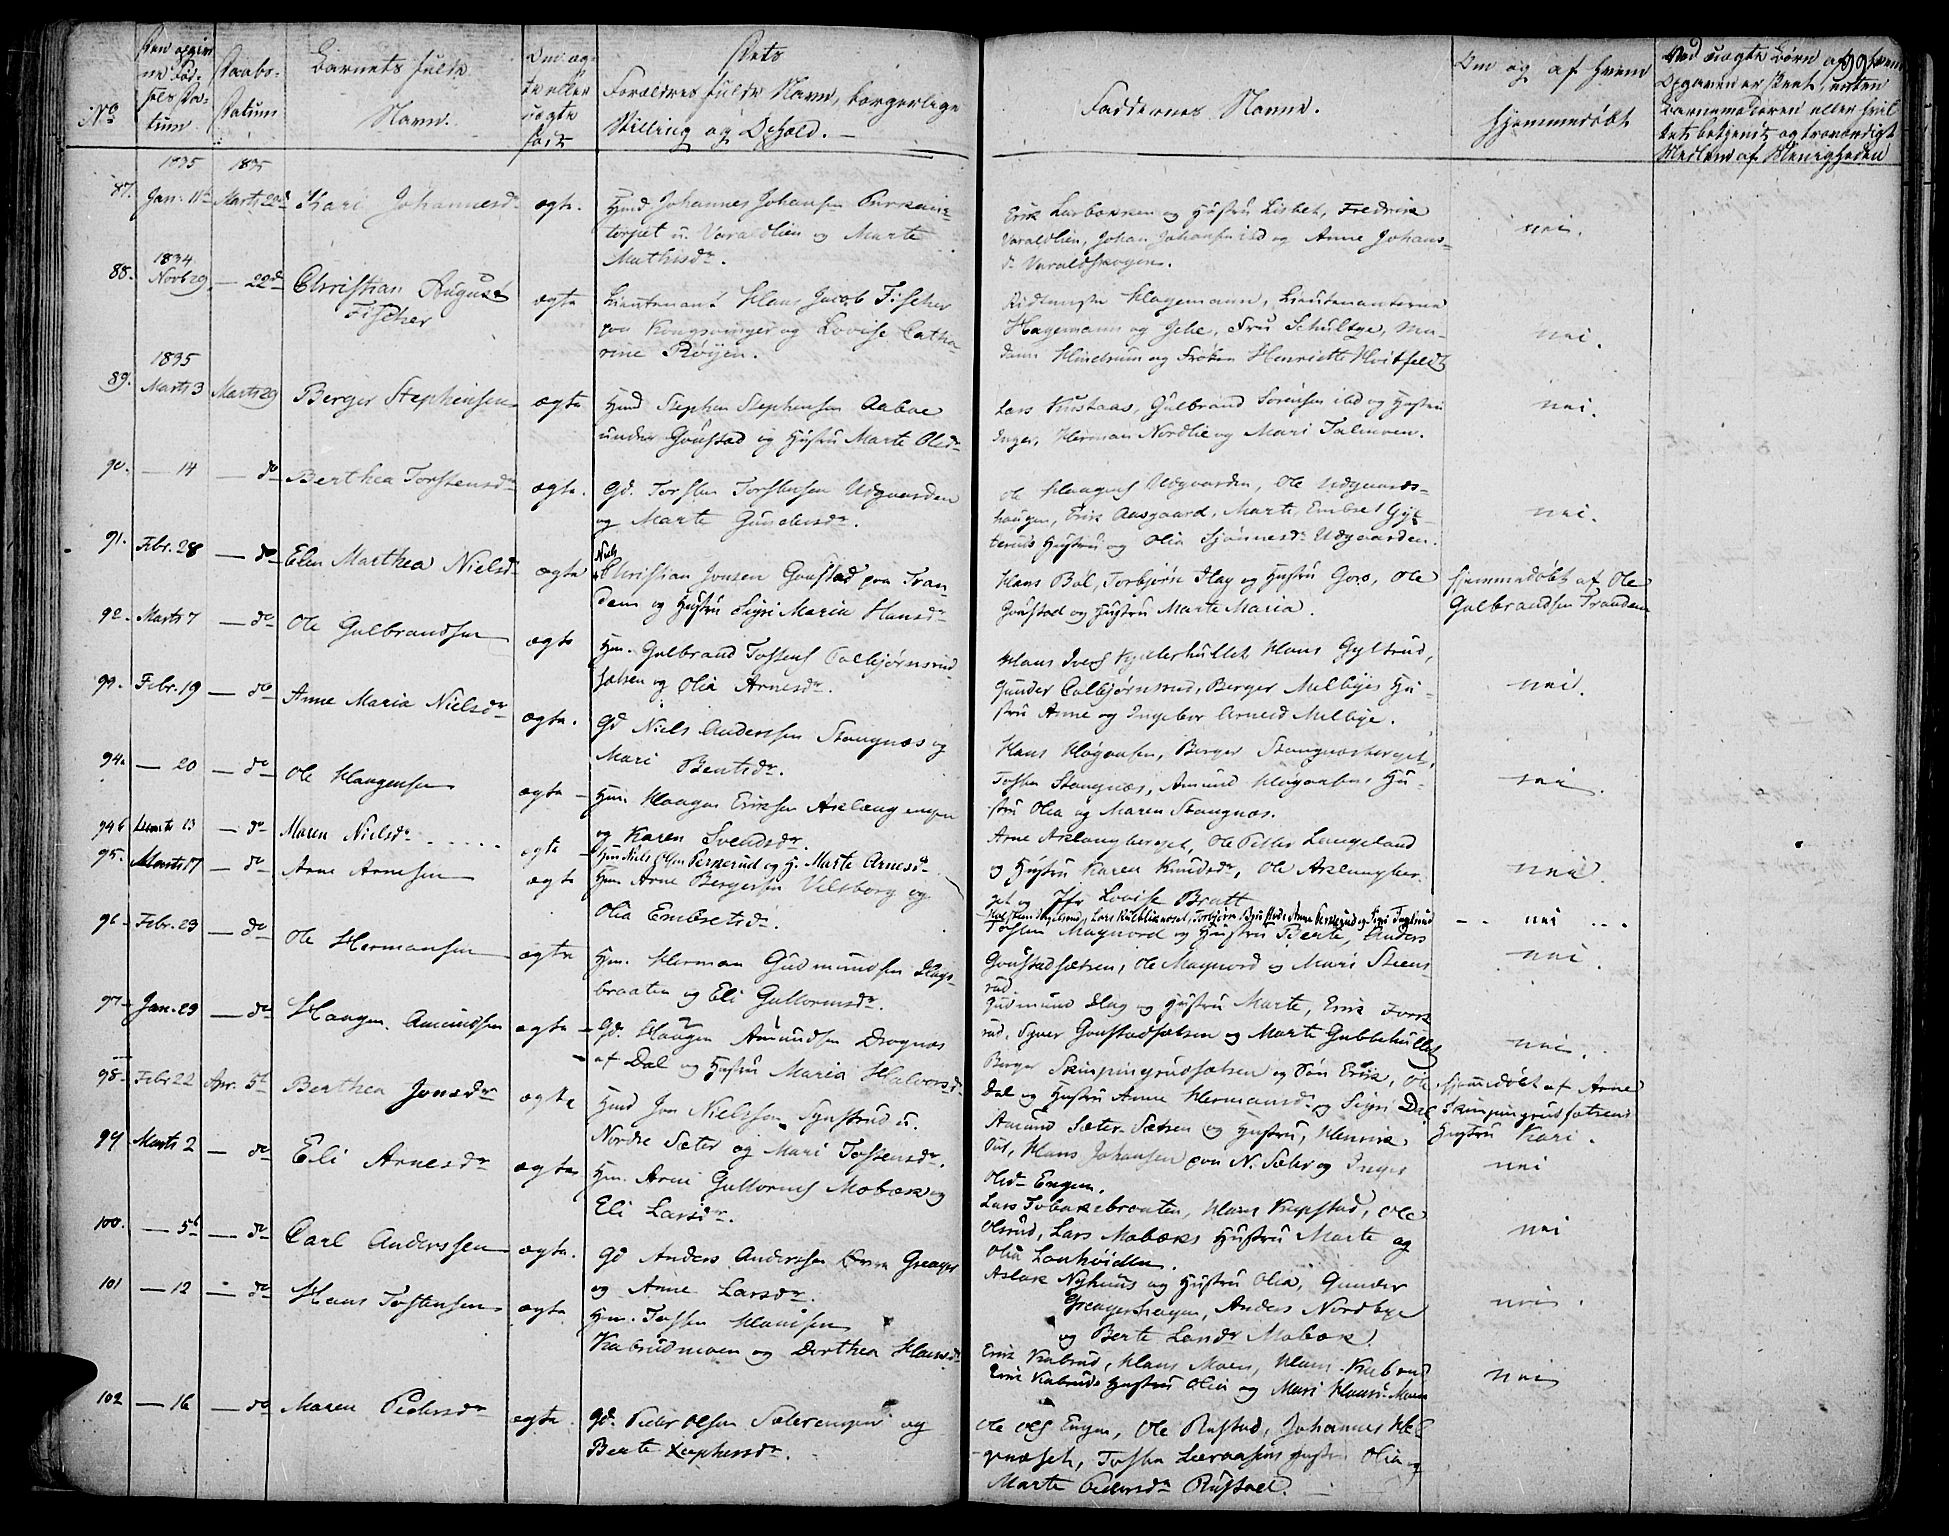 No
Den opgiv
ne Fød-
sels Da-
tum
Daabs-
Datum
Barnets fulde
Navn.
Om æg-
te eller
uægte
født
Dets
Forældres fulde Navn, borgerlige
Stilling og Ophold.
Faddernes Navne.
Om og af hvem
hjemmedøbt
Ved uægte Børn af hvem
Opgaven er skeet, enten
Barnemoderen eller
bekjendt og troværdigt
Medlem af Menigheden
1835 1835
87. Jan. 11te Marts 22de Kari Johannesdr ægte. Hmd Johannes Johansen
torpet u. Varaldlien og Marte
Mathisdr.
Erik Lurbakken og Hustru Lisbet, Fredrik
Varaldlien, Johan Johansen ibd og Anne Johans-
dr Varaldskogen.
nei.
1834
88. Novb 29 — 22de Christian August
Fischer
ægte Lieutenant Hans Jacob Fischer
paa Kongsvinger og Lovise Catha-
rine Røyen.
Hagemann, Lieutenanterne
Hagemann og Jehe, Fru Schultze, Ma-
dam og Frøken Henriette Hvitfeldt
nei.
1835
89. Marts 3 Marts 29 Berger Stephensen ægte Hmd Stephen Stephensen Aaboe
under Goustad og Hustru Marte Olsdr
Lars Kustaas, Gulbrand Sørensen ibd og Hustru
Inger, Herman Nordlie og Mari
nei.
90. — 14 — do Berthea Torstensdr ægte. Gd. Torsten Torstensen Udgaarden
og Marte Gundersdr.
Ole Haagens Udgaarden, Ole Udgaards-
haugen, Erik Aasgaard, Marte Embret Gyl-
teruds Hustru og Olia Udgaarden.
nei.
91. Febr. 28 — do Elen Marthea Nielsdr ægte Niels
Christian Jonsen Goustad paa Tran-
dem og Hustru Sigri Maria Hansdr
Hans Bøl, Torbjørn Hag og Hustru Goro, Ole
Goustad og Hustru Marte Maria.
hjemmedøbt af Ole
Gulbrandsen Trandem
92. Marts 7 — do Ole Gulbrandsen ægte Hm. Gulbrand Tostens Colbjørnsrud
sætsen og Olia Arnesdr.
Hans Ivers Hans Gyltrud,
Gunder Colbjørnsrud, Berger Melbyes Hu-
stru Anne og Ingebor Arnesd Melbye.
nei.
Febr. 19 — do Anne Maria Nielsdr ægte. Gd Niels Anderssen Stangnæs og
Mari Bentsdr.
Hans Høgaasen, Berger Stangnæsberget,
Tosten Stangnæs, Amund Hu-
stru Olia og Maren Stangnæs.
nei.
94a — 20 — do Ole Haagensen ægte Hm. Haagen Eriksen Aslang
og Karen Svendsdr.
Arne Aslangberget, Ole Petter Langeland
og Hustru Karen Knudsdr, Ole Aslangber-
get og Jfr Lovise Bratt
nei.
94b 13 — do Maren Nielsdr ..... ægte Hm Niels Olsen Pernerud og H. Marte Arnesdr
nei ...
95. Marts 17 — do Arne Arnesen ægte Hm. Arne Bergersen Vilsborg og
Olia Embretsdr.
Tosten Maynord og Hustru Berte, Anders
Goustadsætsen, Ole Maynord og Mari Steens-
rud
nei.
96. Febr. 23 — do Ole Hermansen ægte Hm. Herman Gudmundsen Hags-
braaten og Eli Guttormsdr.
Gudmund Hag og Hustru Marte, Erik
rud, Syver Goustadsætsen og Marte Gubbehullet
nei.
97. Jan. 29 — do Haagen Amundsen ægte Gd. Haagen Amundsen Drognæs
af Dal og Hustru Maria Halvorsdr
Berger Skinpingrudsætsen og Søn Erik, Ole
Dal og Hustru Anne Hermansdr og Sigri Dal
hjemmedøbt af Arne
Skinpingrudsætsens
Hustru Kari.
98. Febr 22 Apr. 5te Berthea Jonsdr ægte Hmd Jon Nielssen Synstrud u.
Nordre Sæter og Mari Tostensdr.
Amund Sæter Sætsen og Hustru, Henrik
Hans Johansen paa N. Sæter og Inger
Olsdr Engen.
nei
99 Marts 2 — do Eli Arnesdr ægte Hm. Arne Guttorms Mobæk og
Eli Larsdr.
Lars Tobakebraaten, Hans Kupstad, Ole
Olsrud, Lars Mobæks Hustru Marte og
Olia
nei
100. — 5te — do Carl Anderssen ægte. Gd Anders Anderssen Greager
og Anne Larsdr.
Aslak Nyhuus og Hustru Olia, Gunder
Greagerhagen, Anders Nordbye
og Berte Larsdr Mobæk
nei.
101 — 12 — do Hans Tostensen ægte. Hm. Tosten Hansen
Kabrudmoen og Dorthea Hansdr
Erik Kabrud, Hans Moen, Hans Kabrud
Erik Kabruds Hustru Olia og Mari Hansdr Moen
nei
102 — 16 — do Maren Pedersdr ægte. Gd. Peder Olsen Sæterengen og
Berte Stephensdr.
Ole Ols Engen, Ole Rustad, Johannes Hel-
gnæset, Tosten Leeraasens Hustru Olia og
Marte Pedersdr Rustad.